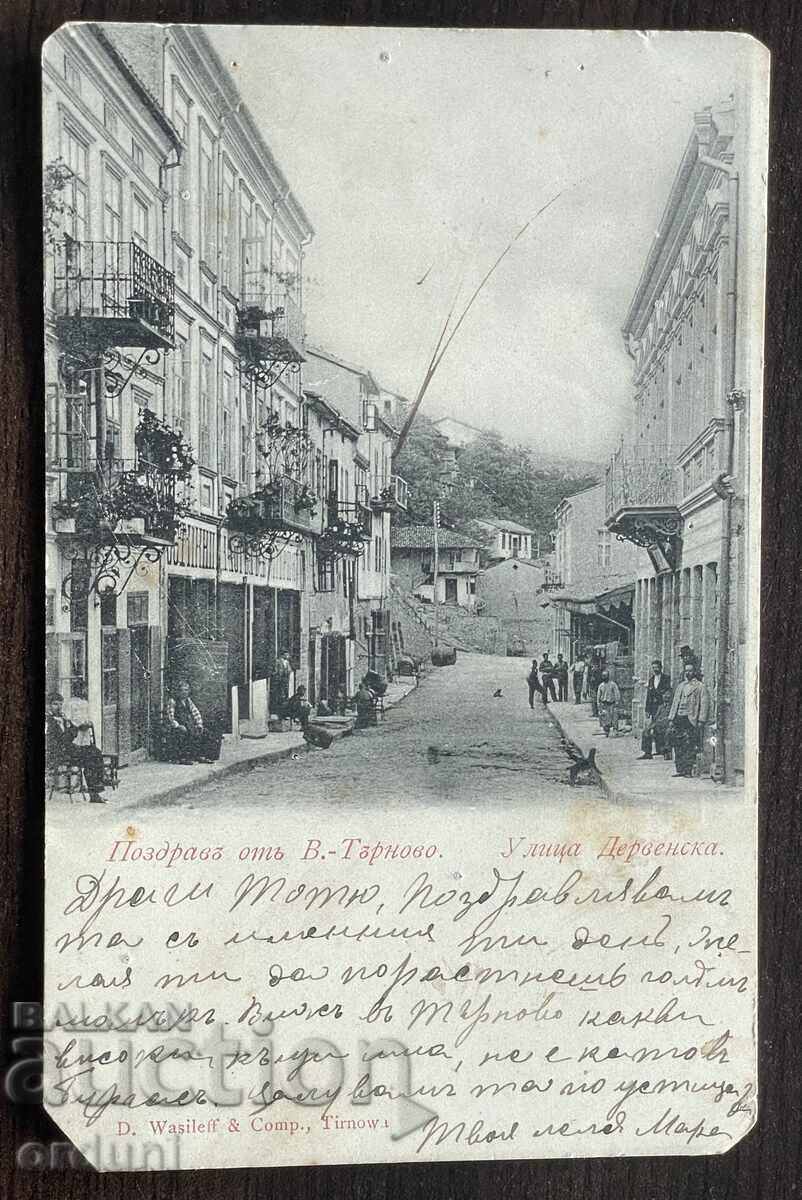 Поздравъ отъ В.-Търново. Улица Дервенска.
Драги Тотю, Поздравлявамъ
та съ именния ти день, Же-
лая ти да порастнешъ голѣмъ
Вижъ въ Търново какви
високи къщи има, не е катовъ
Бургасъ. Цалувамъ та по устицата
Твоя леля Мара
D. Wasileff & Comp., Tirnowa
BALKAN
auction
orduni